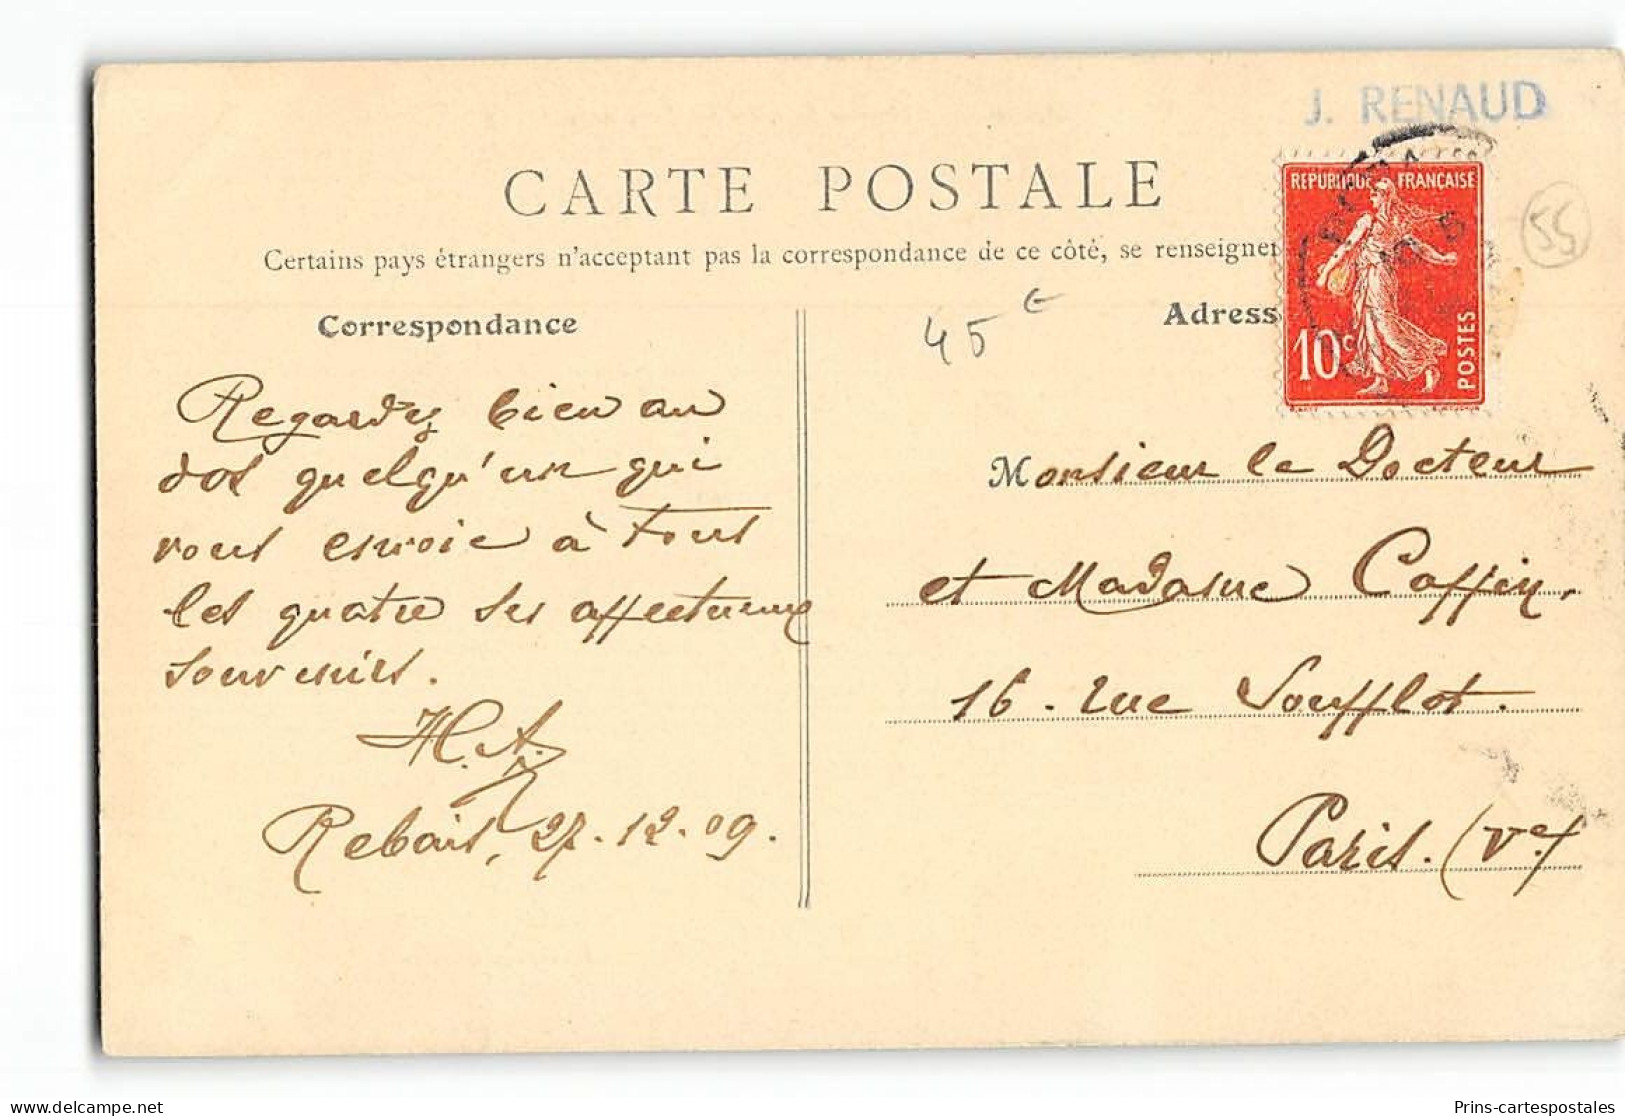 J. RENAUD
CARTE POSTALE
Certains pays étrangers n'acceptant pas la correspondance de ce côté, se renseigner
Correspondance
45 €
Adress
REPUBLIQUE FRANÇAISE
10c
POSTES
55
Regardez bien au
dos quelqu'un qui
vous envoie à tous
les quatre ses affectueux
souvenirs.
H.A.
Rebais, 27-12-09.
Monsieur le Docteur
et Madame Coffin,
16 - rue Soufflot.
Paris. (Ve)
delcampe.net
Prins-cartespostales